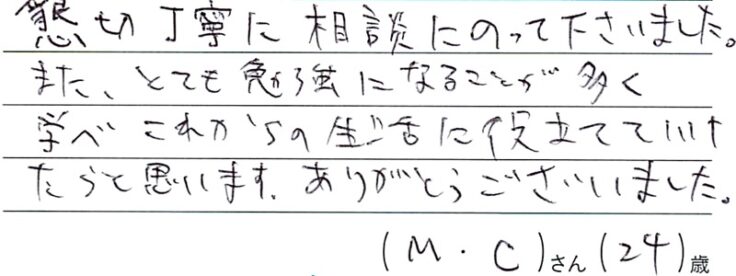 懇切丁寧に相談にのって下さいました。
また、とても勉強になることが多く
学べこれからの生活に役立てていけ
たらと思います。ありがとうございました。
(M・C)さん(24)歳